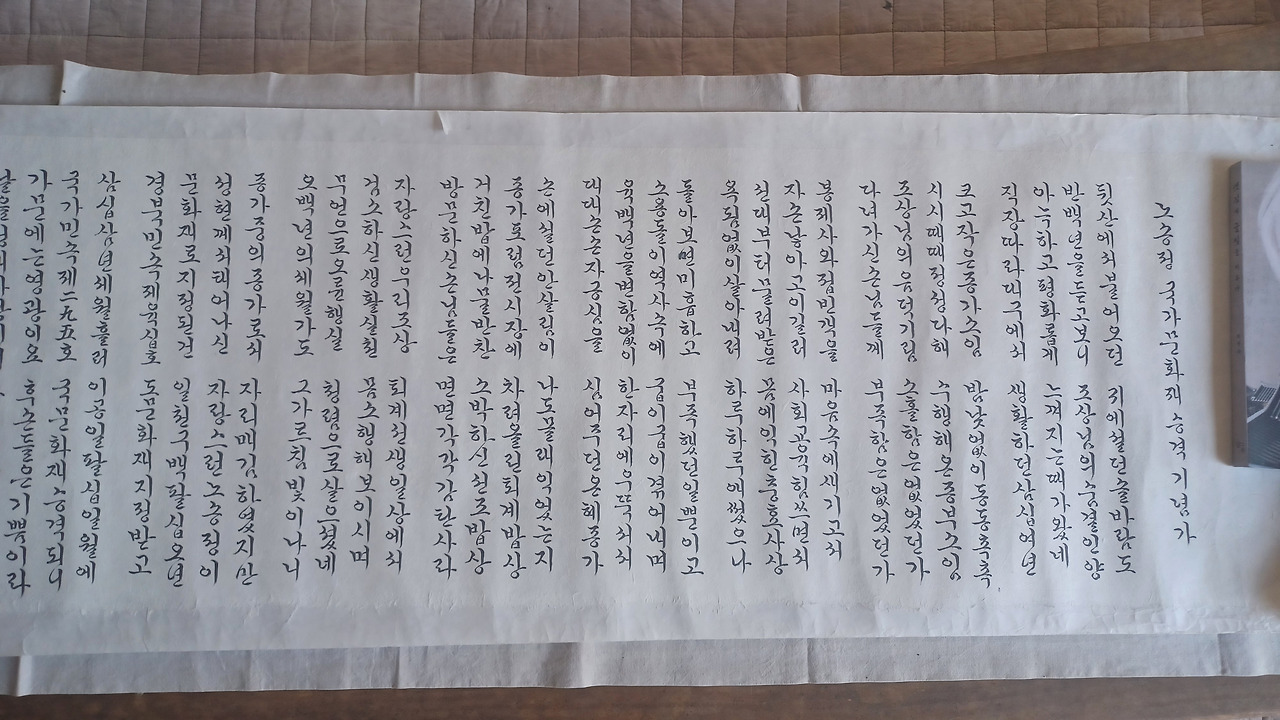 노송정 국가문화재 승격 기념가
뒷산에서불어오던 귀에설던솔바람도
반백년을듣고보니 조상님의숨결인양
아늑하고평화롭게 느껴지는때가왔네
직장따라대구에서 생활하던삼십여년
크고작은종가소임 밤낮없이동동촉촉
시시때때정성다해 수행해온종부소임
조상님의음덕기림 소홀함은없었던가
다녀가신손님들께 부족함은없었던가
봉제사와접빈객을 마음속에새기고서
자손낳아고이길러 사회공직힘쓰면서
선대부터물려받은 품에익힌충효사상
욕됨없이살아내려 하루하루애썼으나
돌아보면미흡하고 부족했던일뿐이고
소용돌이역사속에 굽이굽이겪어내며
육백년을변함없이 한자리에우뚝서서
대대손손자긍심을 심어주던온혜종가
손에설던안살림이 나도몰래익었는지
종가포럼전시장에 차려올린퇴계밥상
거친밥에나물반찬 소박하신선조밥상
방문하신손님들은 면면각각감탄사라
자랑스런우리조상 퇴계선생일상에서
검소하신생활실천 몸소행해보이시며
무언으로오륜행실 청렴으로살으셨네
오백년의세월가도 그가르침빛이나니
종가중의종가로서 자리매김하였지만
성현께서태어나신 자랑스런노송정이
문화재로지정된건 일천구백팔십오년
경북민속제육십호 도문화재지정받고
삼십삼년세월흘러 이공일팔십일월에
국가민속제二九五호 국문화재승격되니
가문에는영광이요 후손들은기쁨이라